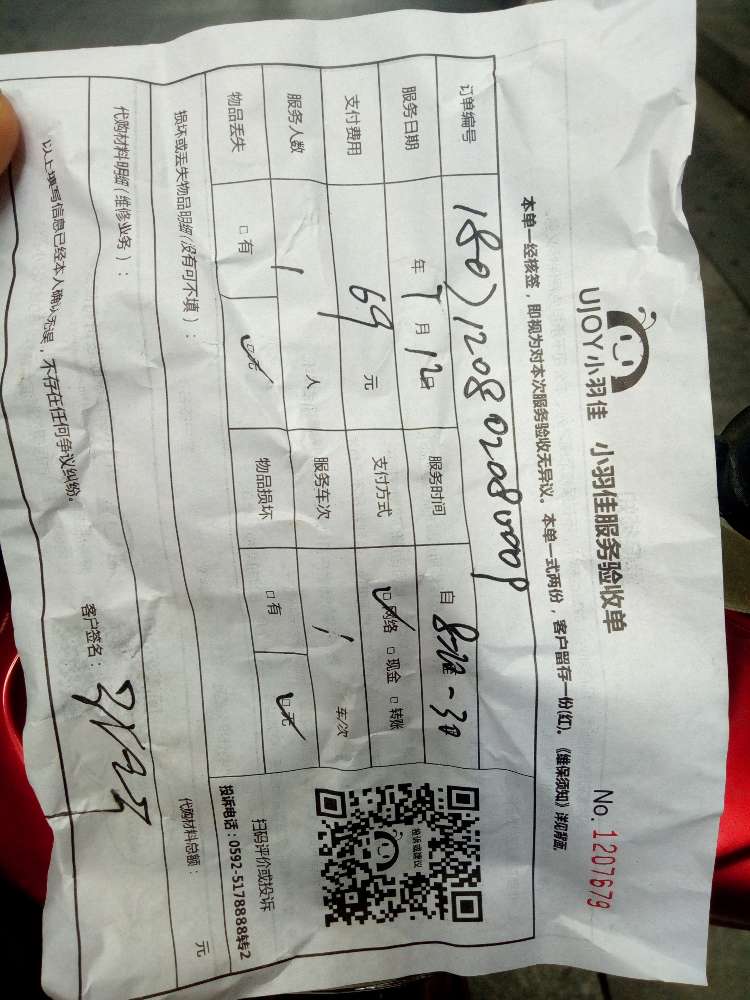 UJOY小羽佳 小羽佳服务验收单 No. 1207679
本单一经核签，即视为对本次服务验收无异议。本单一式两份，客户留存一份(红)。《维保须知》详见背面
订单编号
服务日期 年 7 月 12日 服务时间 自
支付费用 69 元 支付方式 网络 现金 转账
服务人数 1 人 服务车次 1 车/次
物品丢失 有 无 物品损坏 有 无
投诉建议
扫码评价或投诉
投诉电话：0592-5178888转2
损坏或丢失物品明细(没有可不填)：
代购材料明细(维修业务)： 代购材料总额： 元
以上填写信息已经本人确认无误，不存在任何争议纠纷。 客户签名：